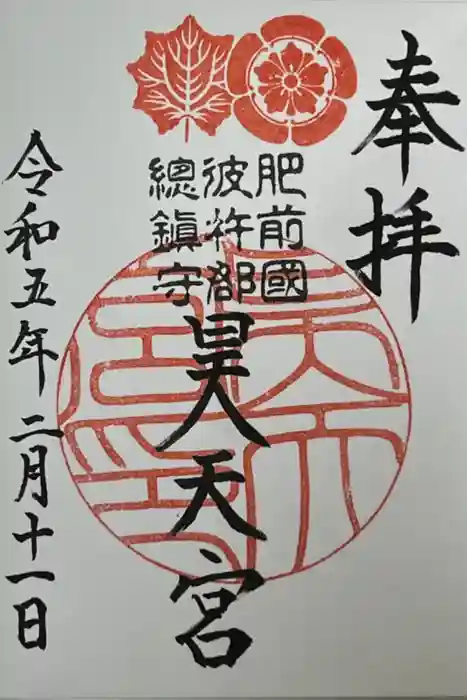 奉拝
肥前國
彼杵郡
總鎮守
昊天宮
昊天
宮印
令和五年二月十一日